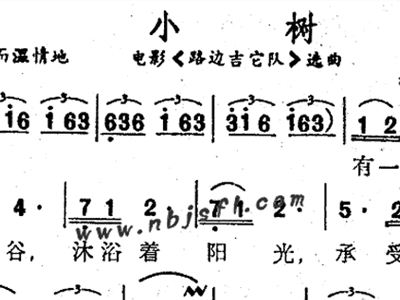 小 树
而温情地 电影《路边吉它队》选曲
i16 i63 | 636 i63 | 3i6 i63) | 1 2
有一
4· | 7 1 2· | 7 1 2· | 5· 2
谷, 沐浴着 阳 光, 承受
www.nbjsfh.com